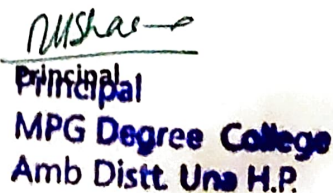 Principal
MPG Degree College
Amb Distt. Una H.P.